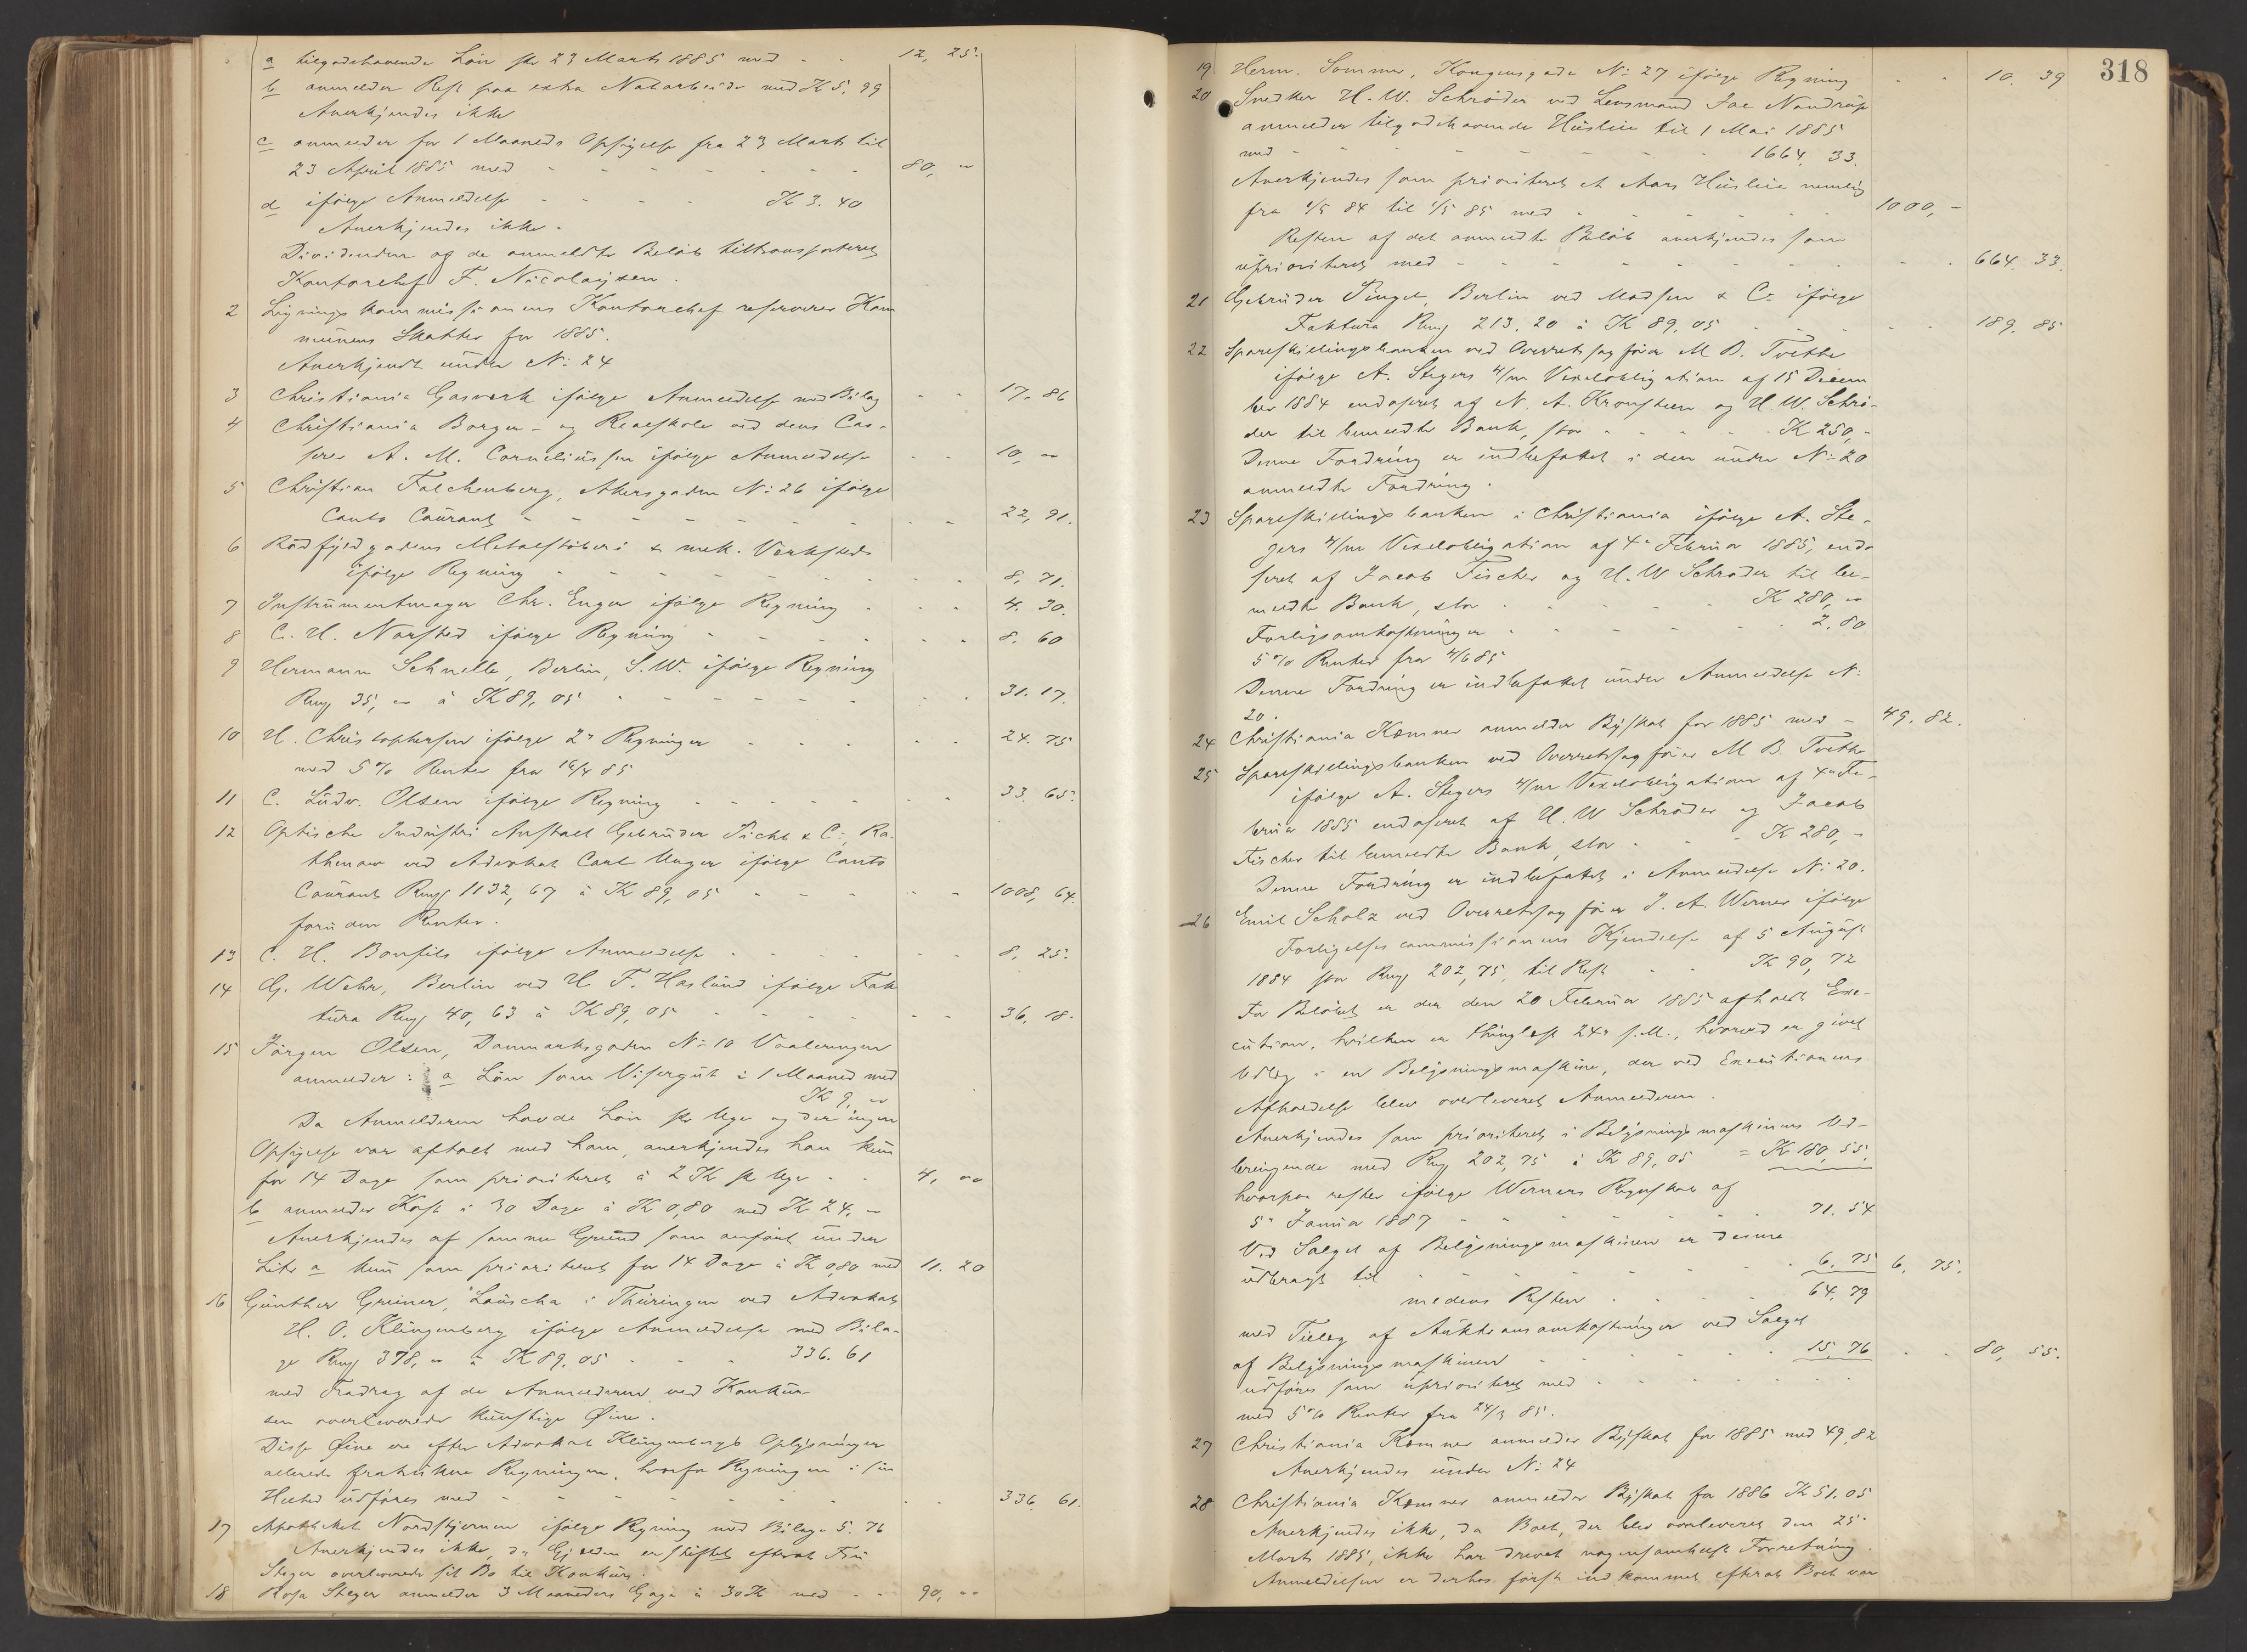 a tilgodehavende Løn pr 23 Marts 1885 med - - 12, 25.
b anmelder Rest paa extra Natarbeide med K 5, 99
Anerkjendes ikke
c anmelder for 1 Maaneds Opsigelse fra 23 Marts til
23 April 1885 med - - - 80, "
d ifølge Anmeldelse - - - K 3. 40
Anerkjendes ikke.
Dividenden af de anmeldte Beløb tiltransporteret
Kontorchef F. Nicolaysen.
2 Ligningskommissionens Kontorchef reserverer Kom
munens Skatter for 1885.
Anerkjendt under No 24
3 Christiania Gasverk ifølge Anmeldelse med Bilag - - 17. 86
4 Christiania Borger- og Realskole ved dens Cas-
serer A. M. Corneliussen ifølge Anmeldelse - - 10, "
5 Christian Falchenberg, Akersgaden No 26 ifølge
Conto Courant - - - 22, 91.
6 Rødfyldgadens Metalstøberi & mek. Værksted
ifølge Regning - - - 8. 71.
7 Instrumentmager Chr. Enger ifølge Regning - - - 4. 30.
8 C. H. Norsted ifølge Regning - - - 8. 60
9 Hermann Schnelle, Berlin, S.W. ifølge Regning
Rmf 35, " à K 89, 05 - - - 31. 17.
10 H. Christophersen ifølge 2" Regninger - - - 24. 75
med 5 % Renter fra 16/4 85
11 C. Ludv. Olsen ifølge Regning - - - 33. 65.
12 Optische Industri Anstalt Gebrüder Picht & Co, Ra-
thenow ved Advokat Carl Unger ifølge Conto
Courant Rmf 1132, 67 à K 89, 05 - - - 1008, 64.
foruden Renter.
13 C. H. Bonfils ifølge Anmeldelse - - - 8. 25.
14 G. Wehr, Berlin ved H F. Haslund ifølge Fak
tura Rmf 40, 63 à K 89, 05 - - - 36. 18.
15 Jørgen Olsen, Danmarksgaden No 10 Vaalerengen
anmelder: a Løn som Visergut i 1 Maaned med
K 9, "
Da Anmelderen havde Løn pr Uge og der ingen
Opsigelse var aftalt med ham, anerkjendes han kun
for 14 Dage som prioriteret à 2 K pr Uge - - 4, "
b anmelder Kost i 30 Dage à K 0,80 med K 24, "
Anerkjendes af samme Grund som anført under
Litr a kun som prioriteret for 14 Dage à K 0,80 med 11. 20
16 Günther Greiner, Lauscha i Thüringen ved Advokat
H. O. Klingenberg ifølge Anmeldelse med Bila-
ge Rmf 378, " à K 89. 05 - - - 336. 61
med Fradrag af de Anmelderen ved Konkur-
sen overleverede kunstige Øine.
Disse Øine ere efter Advokat Klingenbergs Oplysninger
allerede fratrukne Regningen, hvorfor Regningen i sin
Helhed udføres med - - - 336. 61.
17 Apotheket Nordstjernen ifølge Regning med Bilag - 5. 76
Anerkjendes ikke, da Gjælden er stiftet efterat Fru
Steger overleverede sit Bo til Konkurs.
18 Rosa Steger anmelder 3 Maaneders Gage à 30 K med - - 90, "
318
19 Herm. Sommer, Kongensgade No 27 ifølge Regning - - 10. 39
20 Snedker H. W. Schrøder ved Lensmand Joe Nandrup
anmelder tilgodehavende Husleie til 1 Mai 1885
med - - - 1664. 33.
Anerkjendes som prioriteret et Aars Husleie nemlig
fra 1/5 84 til 1/5 85 med - - - 1000, -
Resten af det anmeldte Beløb anerkjendes som
uprioriteret med - - - 664. 33.
21 Gebrüder Pinget, Berlin ved Madsen & Co ifølge
Faktura Rmf 213. 20 à K 89. 05 - - - 189. 85
22 Spareskillingsbanken ved Overretssagfører M B. Tvethe
ifølge A. Stegers 4/m Vexelobligation af 15 Decem
ber 1884 endosseret af N. A. Kronsteen og H. W. Schrø-
der til bemeldte Bank, stor - - - K 250, -
Denne Fordring er indbefattet i den under No 20
anmeldte Fordring.
23 Spareskillingsbanken i Christiania ifølge A. Ste-
gers 4/m Vexelobligation af 4" Februar 1885, endo
seret af Jacob Fischer og H. W Schrøder til be-
meldte Bank, stor - - - K 280, "
Forligsomkostninger - - - 2. 80
5 % Renter fra 4/6 85
Denne Fordring er indbefattet under Anmeldelse No
20.
24 Christiania Kemner anmelder Byskat for 1885 med - 49. 82.
25 Spareskillingsbanken ved Overretssagfører M B. Tvethe
ifølge A. Stegers 4/m Vexelobligation af 4" Fe-
bruar 1885 endosseret af H. W Schrøder og Jacob
Fischer til bemeldte Bank, stor - - K 280, -
Denne Fordring er indbefattet i Anmeldelse No 20.
26 Emil Scholz ved Overretssagfører J. A. Werner ifølge
Forligelsescommissionens Kjendelse af 5 August
1884 stor Rmf 202, 75, til Rest - - K 90, 72
For Beløbet er der den 20 Februar 1885 afholdt Exe-
cution, hvilken er thinglæst 24" s. M., hvorved er givet
Udlæg i en Belysningsmaskine, der ved Executionens
Afholdelse blev overleveret Anmelderen.
Anerkjendes som prioriteret i Belysningsmaskinens Ud-
bringende med Rmf 202, 75 à K 89, 05 = K 180, 55.
hvorpaa rester ifølge Werners Regnskab af
5" Januar 1887 - - - 71. 54
Ved Salget af Belysningsmaskinen er denne
udbragt til - - - 6. 75 6. 75.
medens Resten - - - 64. 79
med Tillæg af Auktionsomkostninger ved Salget
af Belysningsmaskinen - - - 15. 76 - - 80, 55.
udføres som uprioriteret med - - -
med 5 % Renter fra 24/3 85.
27 Christiania Kemner anmelder Byskat for 1885 med 49. 82
Anerkjendes under No 24
28 Christiania Kemner anmelder Byskat for 1886 K 51. 05
Anerkjendes ikke, da Boet, der blev overleveret den 25"
Marts 1885, ikke har drevet nogensomhelst Forretning.
Anmeldelsen er derhos først indkommet efterat Boet var